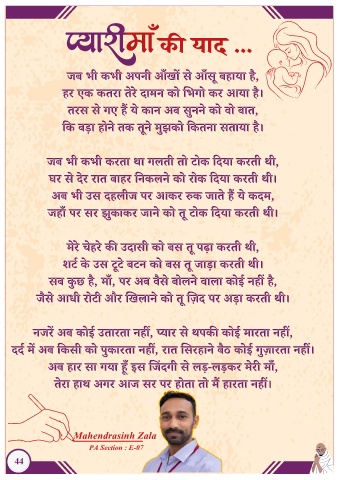 प्यारी माँ की याद ...
जब भी कभी अपनी आँखों से आँसू बहाया है,
हर एक कतरा तेरे दामन को भिगो कर आया है।
तरस से गए हैं ये कान अब सुनने को वो बात,
कि बड़ा होने तक तूने मुझको कितना सताया है।
जब भी कभी करता था गलती तो टोक दिया करती थी,
घर से देर रात बाहर निकलने को रोक दिया करती थी।
अब भी उस दहलीज पर आकर रुक जाते हैं ये कदम,
जहाँ पर सर झुकाकर जाने को तू टोक दिया करती थी।
मेरे चेहरे की उदासी को बस तू पढ़ा करती थी,
शर्ट के उस टूटे बटन को बस तू जाड़ा करती थी।
सब कुछ है, माँ, पर अब वैसे बोलने वाला कोई नहीं है,
जैसे आधी रोटी और खिलाने को तू ज़िद पर अड़ा करती थी।
नजरें अब कोई उतारता नहीं, प्यार से थपकी कोई मारता नहीं,
दर्द में अब किसी को पुकारता नहीं, रात सिरहाने बैठ कोई गुज़ारता नहीं।
अब हार सा गया हूँ इस जिंदगी से लड़-लड़कर मेरी माँ,
तेरा हाथ अगर आज सर पर होता तो मैं हारता नहीं।
Mahendrasinh Zala
PA Section : E-07
44